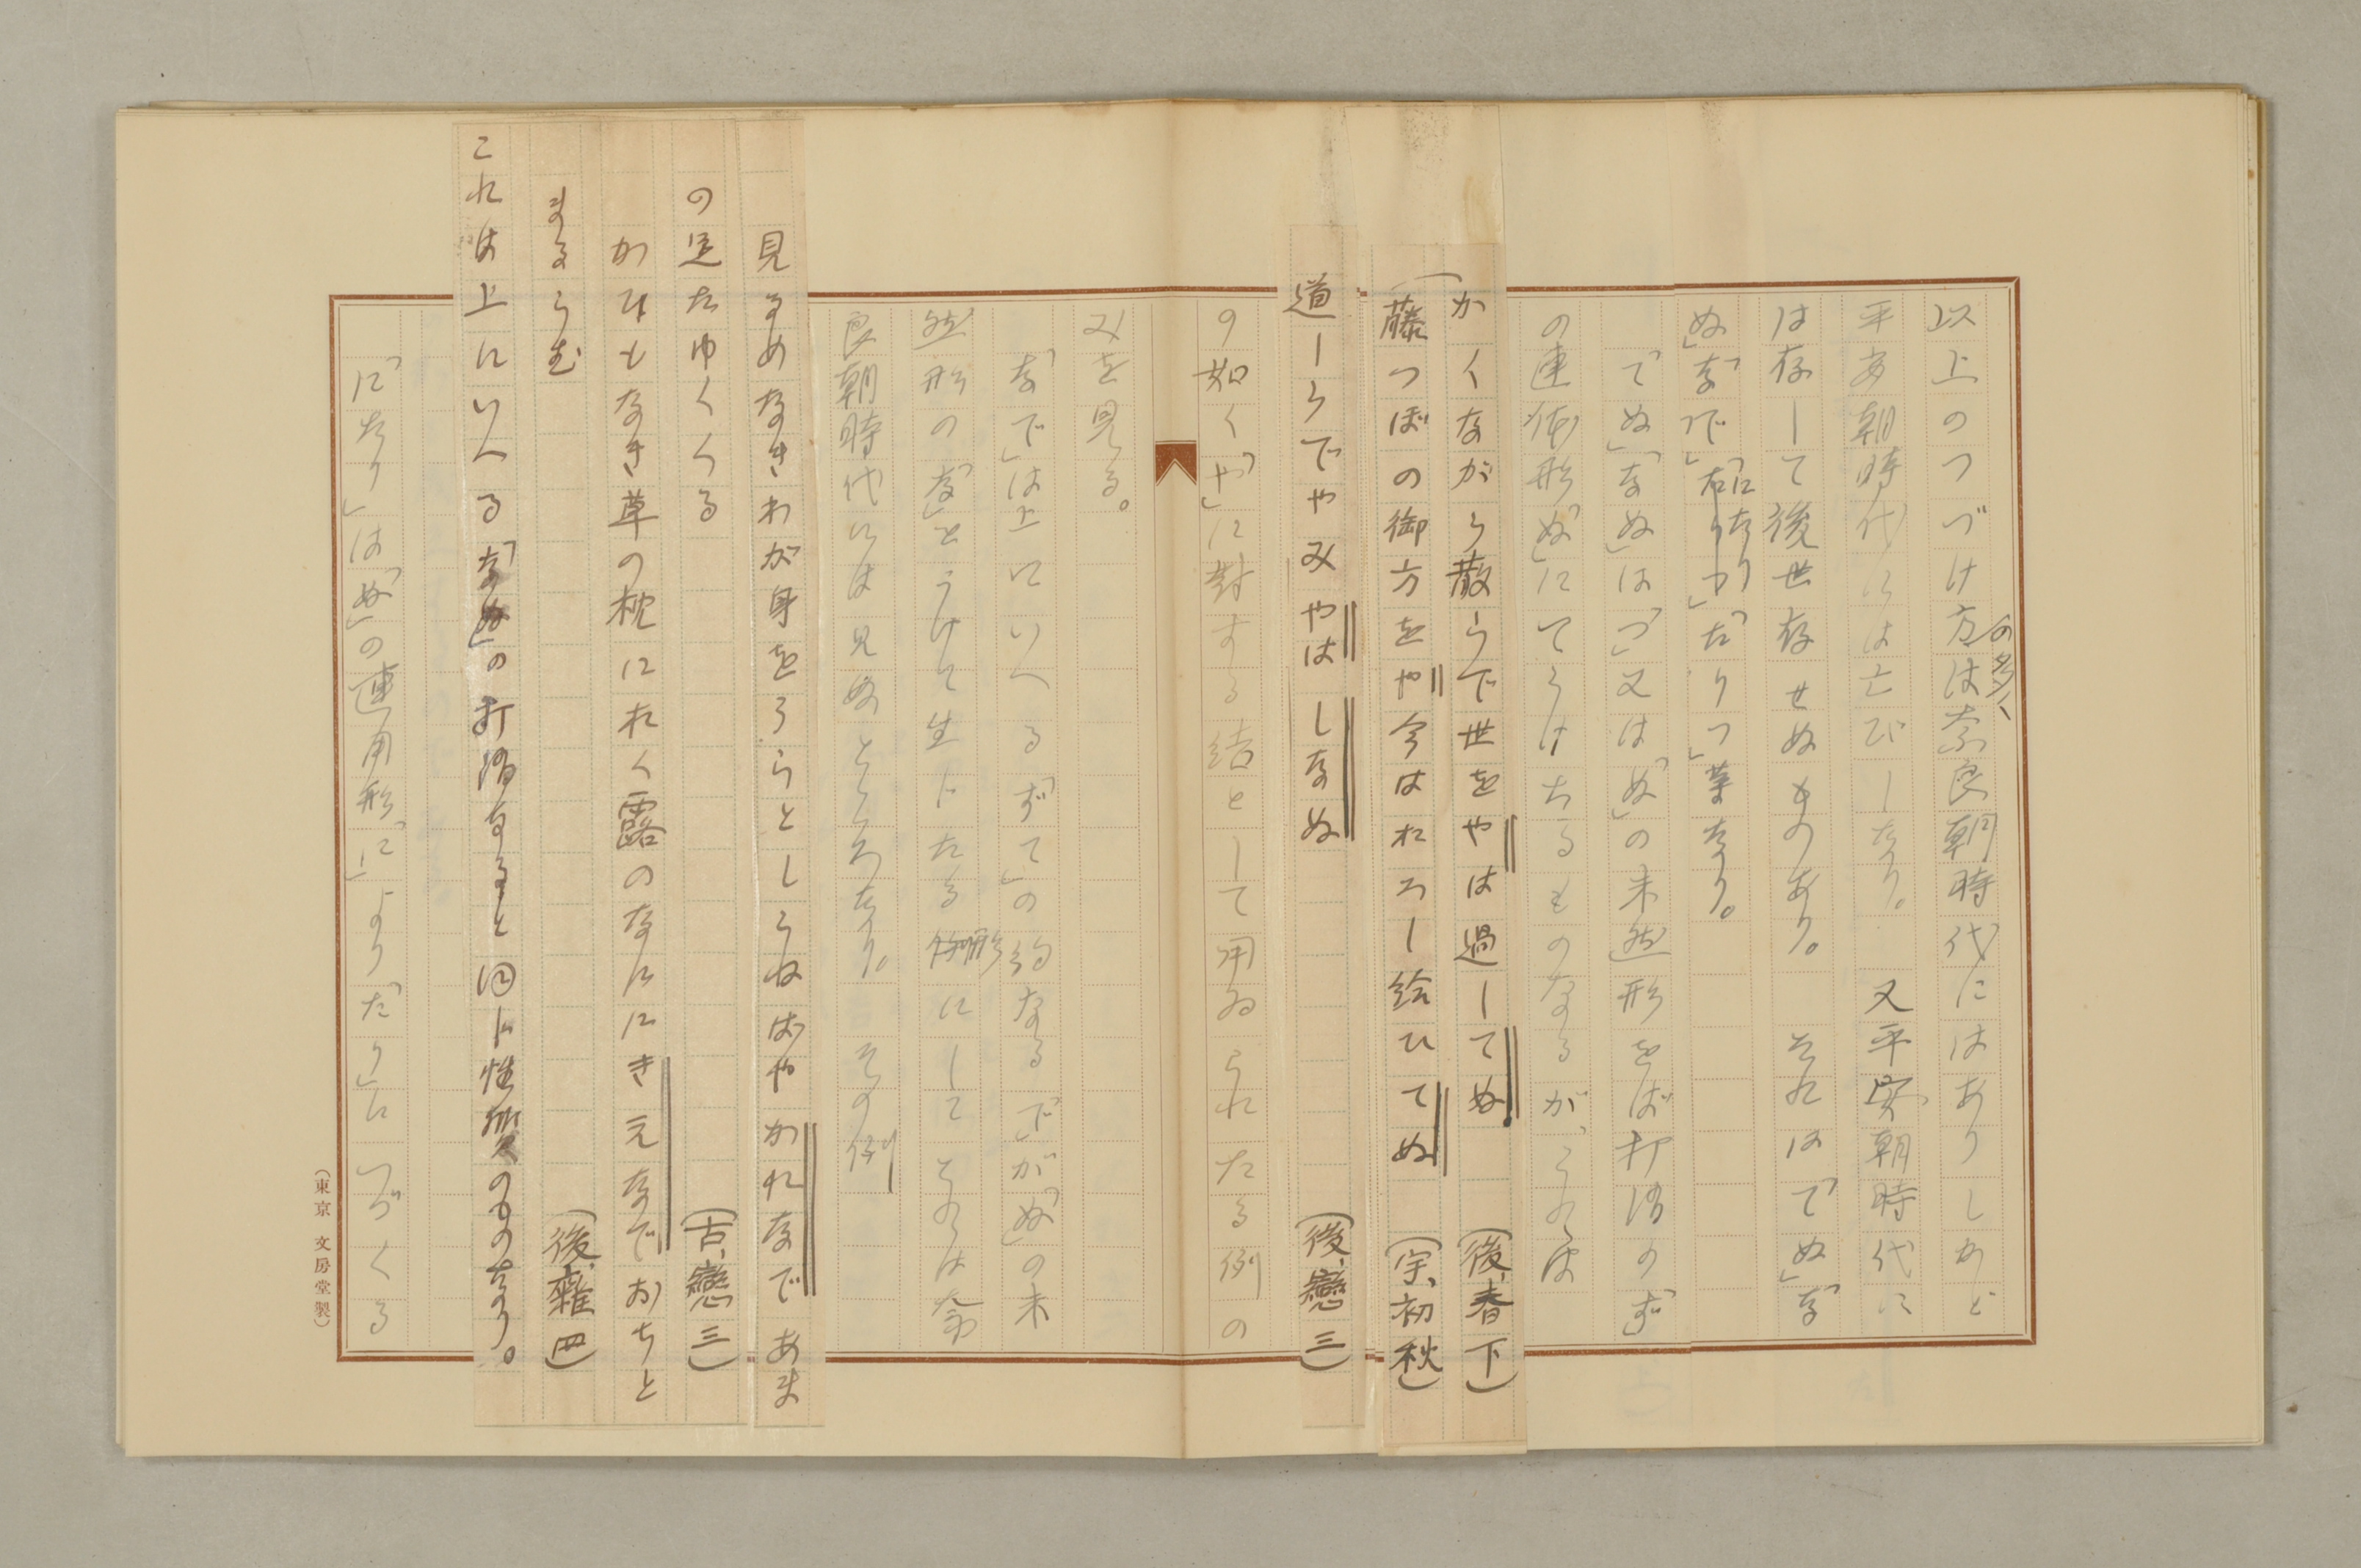 以上のつづけ方の多くは奈良朝時代にはありしかど
平安朝時代には亡びしなり。又平安朝時代に
は存して後世存せぬものあり。それは「てぬ」「な
ぬ」「なで」「にたり」「たりつ」等なり。
「てぬ」「なぬ」は「つ」又は「ぬ」の未然形をば打消の「ず」
の連体形「ぬ」にてうけたるものなるが、これは
かくながら散らで世をやは過してぬ（後、春下）
（藤つぼの御方をや今はおろし給ひてぬ（宇、初秋）
道しらでやみやはしなぬ（後、戀三）
の如く「や」に對する結として用ゐられたる例の
みを見る。
「なで」は上にいへる「ずて」の約なる「で」が「ぬ」の未
然形の「な」をうけて生じたる形にしてこれは奈
良朝時代には見ぬところなり。その例
見るめなきわが身をうらとしらねばやかれなであま
の足たゆくくる（古、戀三）
かひもなき草の枕におく露のなににきえなでおちと
まるらむ（後、雜四）
これは上にいへる「なぬ」の打消なると同じ性質のものなり。
「にたり」は「ぬ」の連用形「に」より「たり」につづくる
（東京 文房堂製）